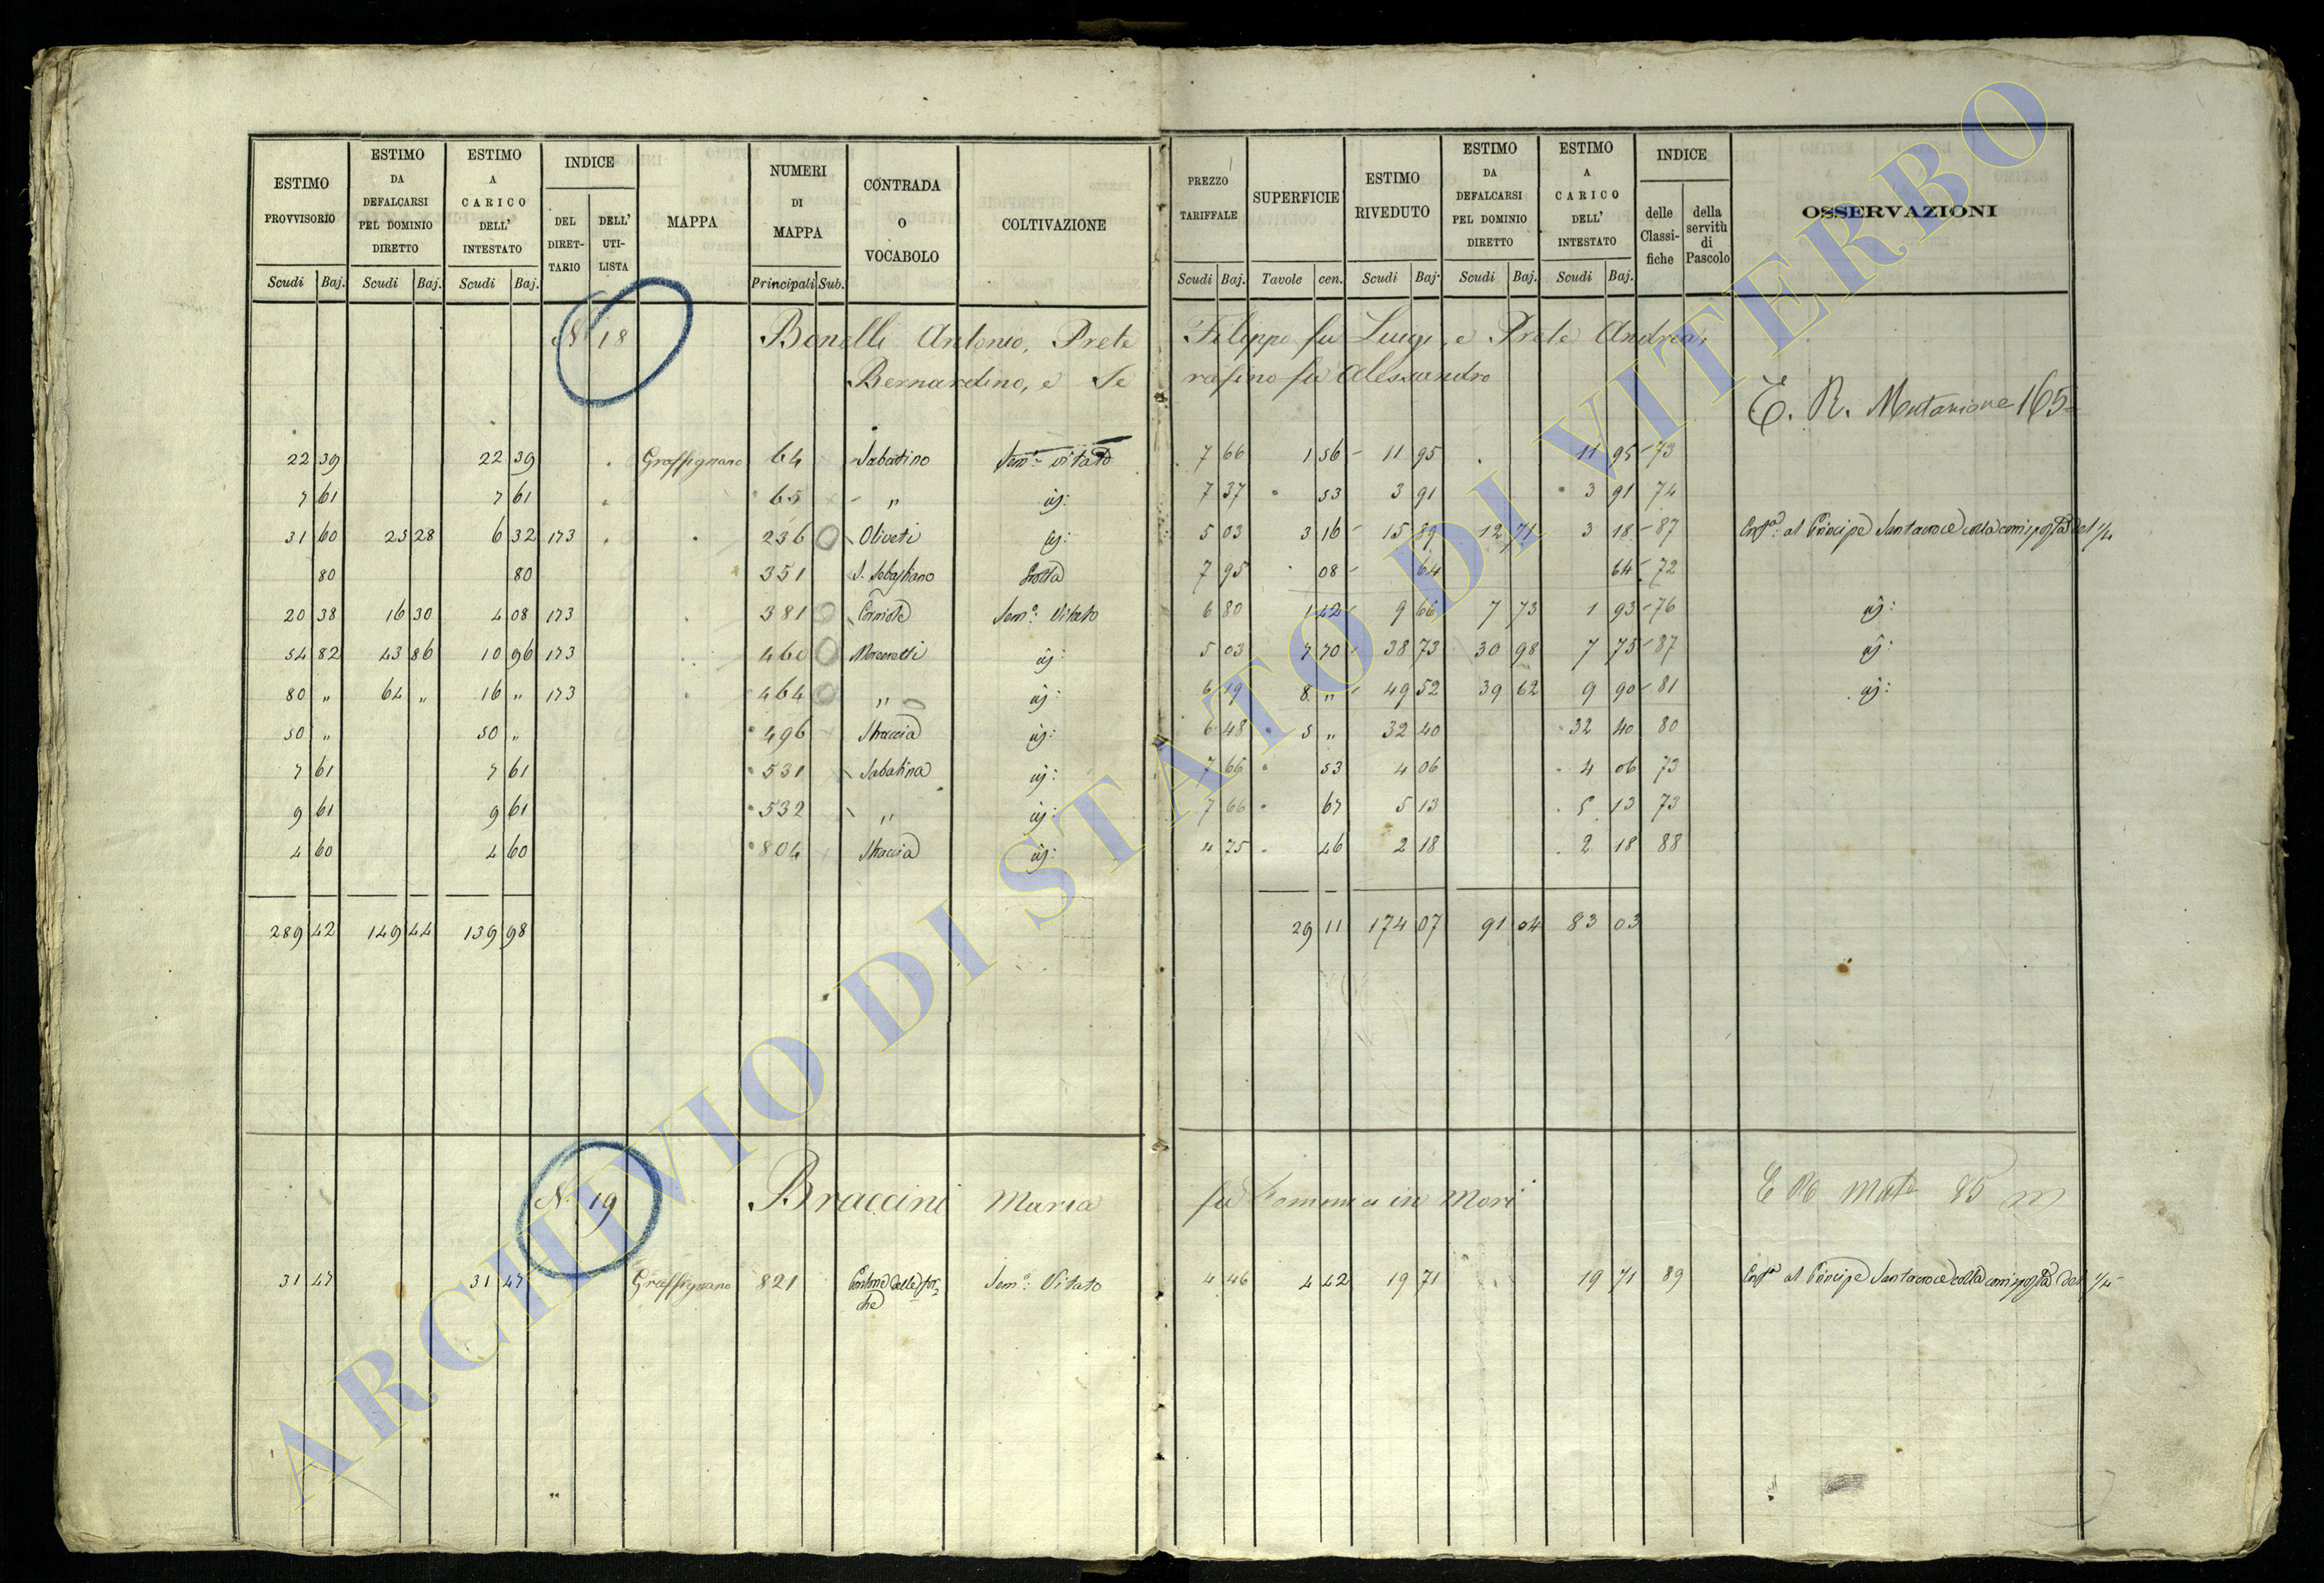 ESTIMO PROVVISORIO | ESTIMO DA DEFALCARSI PEL DOMINIO DIRETTO | ESTIMO A CARICO DELL' INTESTATO | INDICE | MAPPA | NUMERI DI MAPPA | CONTRADA O VOCABOLO | COLTIVAZIONE | PREZZO TARIFFALE | SUPERFICIE | ESTIMO RIVEDUTO | ESTIMO DA DEFALCARSI PEL DOMINIO DIRETTO | ESTIMO A CARICO DELL' INTESTATO | INDICE | OSSERVAZIONI
DEL DIRET-TARIO | DELL' UTI-LISTA | delle Classi-fiche | della servitù di Pascolo
Scudi Baj. | Scudi Baj. | Scudi Baj. | Principali Sub. | Scudi Baj. | Tavole cen. | Scudi Baj. | Scudi Baj. | Scudi Baj.
N. 18 Bonelli Antonio, Prete Filippo fu Luigi, e Prete Andrea,
Bernardino, e Serafino fu Alessandro
E. R. Mutazione 165
22 39 | 22 39 | Graffignano | 64 | Sabatino | Sem.o vitato | 7 66 | 1 56 | 11 95 | 11 95 | 73
7 61 | 7 61 | 65 | " | 7 37 | 53 | 3 91 | 3 91 | 74
31 60 | 25 28 | 6 32 | 173 | 236 | Oliveti | 5 03 | 3 16 | 15 89 | 12 71 | 3 18 | 87 | al Principe Santacroce colla corrisposta del 1/4
80 | 80 | 351 | S. Sebastiano | Grotta | 7 95 | 08 | 64 | 64 | 72
20 38 | 16 30 | 4 08 | 173 | 381 | Sem.o Vitato | 6 80 | 1 42 | 9 66 | 7 73 | 1 93 | 76
54 82 | 43 86 | 10 96 | 173 | 460 | 5 03 | 7 70 | 38 73 | 30 98 | 7 75 | 87
80 " | 64 " | 16 " | 173 | 464 | " | 6 19 | 8 " | 49 52 | 39 62 | 9 90 | 81
50 " | 50 " | 496 | Straccia | 6 48 | 5 " | 32 40 | 32 40 | 80
7 61 | 7 61 | 531 | Sabatina | 7 66 | 53 | 4 06 | 4 06 | 73
9 61 | 9 61 | 532 | " | 7 66 | 67 | 5 13 | 5 13 | 73
4 60 | 4 60 | 804 | Straccia | 4 75 | 46 | 2 18 | 2 18 | 88
289 42 | 149 44 | 139 98 | 29 11 | 174 07 | 91 04 | 83 03
N. 19 Braccini Maria fu Tommaso in Mori
31 47 | 31 47 | Graffignano | 821 | Sem.o Vitato | 4 46 | 4 42 | 19 71 | 19 71 | 89 | al Principe Santacroce colla corrisposta del 1/5
ARCHIVIO DI STATO DI VITERBO